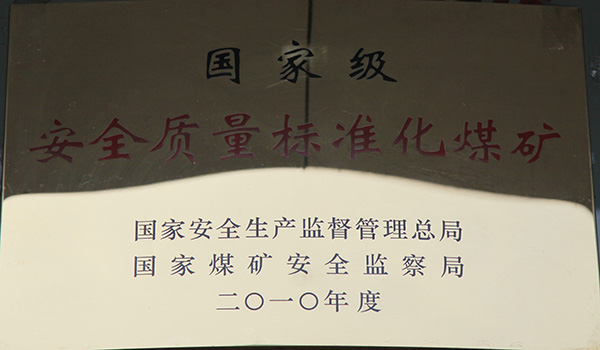 国家级
安全质量标准化煤矿
国家安全生产监督管理总局
国家煤矿安全监察局
二〇一〇年度